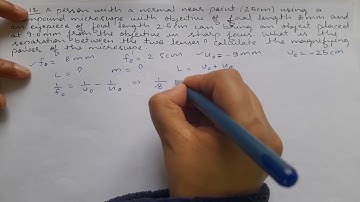 12. A person with a normal near point (25cm) using a
compound microscope with objective of focal length 8mm and
an eyepiece of focal length 2.5cm can bring an object placed
at 9.0mm from the objective in sharp focus. What is the
separation between the two lenses? Calculate the magnifying
power of the microscope.
fo = 8mm fe = 2.5cm uo = -9mm ve = -25cm
L = ? m = ? L = vo + ue
1/fo = 1/vo - 1/uo ⇒ 1/8